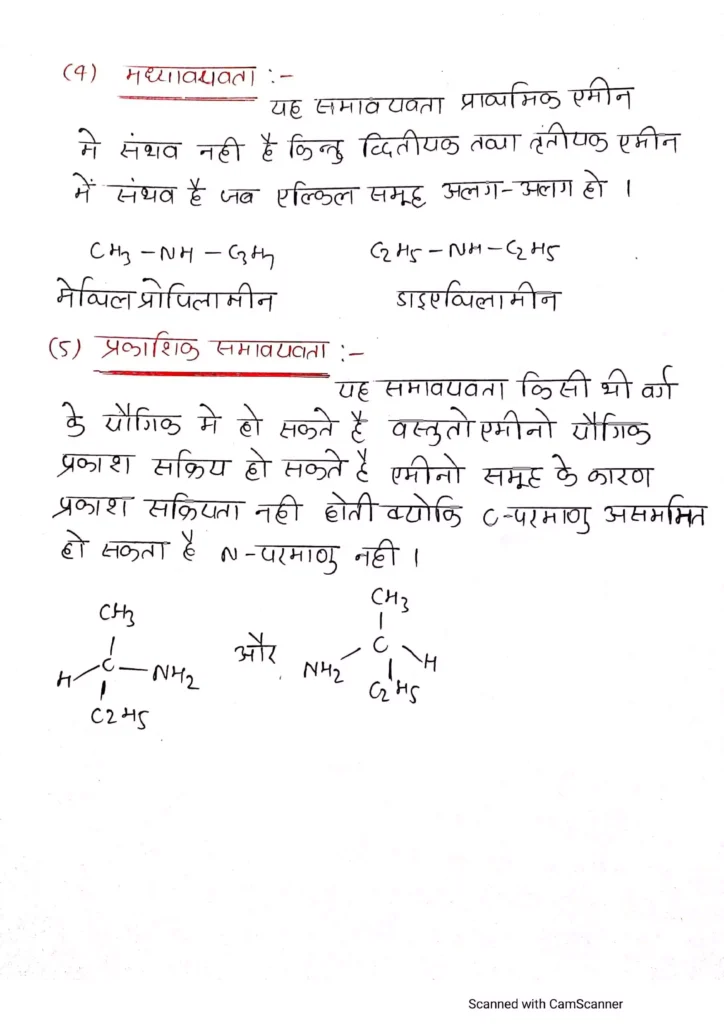 (4) मध्यावयवता :-
यह समावयवता प्राथमिक एमीन
मे संभव नही है किन्तु द्वितीयक तथा तृतीयक एमीन
में संभव है जब एल्किल समूह अलग-अलग हो ।
CH3 - NH - C3H7 C2H5 - NH - C2H5
मेथिल प्रोपिलामीन डाइएथिलामीन
(5) प्रकाशिक समावयवता :-
यह समावयवता किसी भी वर्ग
के यौगिक मे हो सकते है वस्तुतो एमीनो यौगिक
प्रकाश सक्रिय हो सकते है एमीनो समूह के कारण
प्रकाश सक्रियता नही होती क्योकि C-परमाणु असममित
हो सकता है N-परमाणु नही ।
CH3 और CH3
H - C - NH2 NH2 - C - H
C2H5 C2H5
Scanned with CamScanner